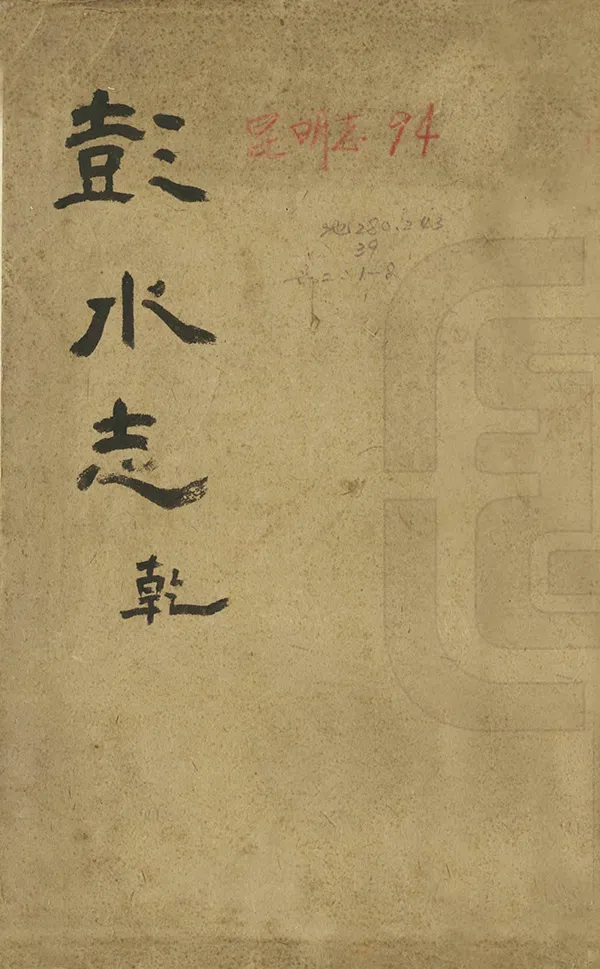 彭水志 乾
昆明志 94
地280.243
39
:1-8